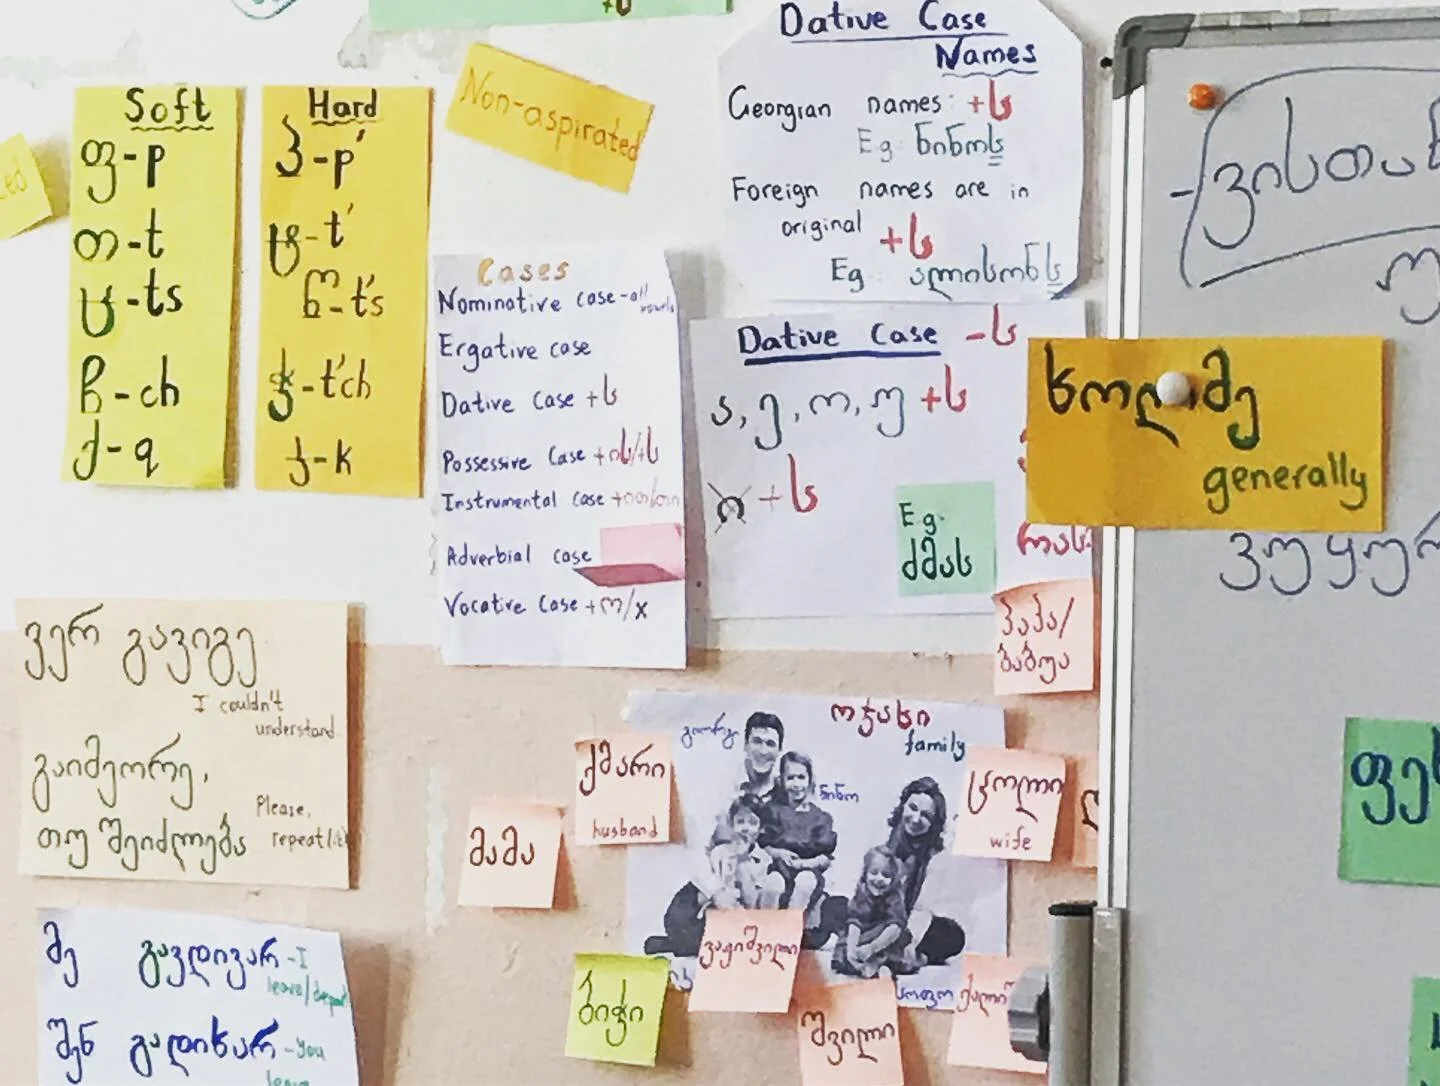 Soft
ფ-p
თ-t
ც-ts
ჩ-ch
ქ-q
Hard
პ-p'
ტ-t'
წ-t's
ჭ-t'ch
კ-k
Non-aspirated
Dative Case
Names
Georgian names: +ს
Eg ნინოს
Foreign names are in
original +ს
Eg: ალისონს
Cases
Nominative case-all vowels
Ergative case
Dative Case +ს
Possessive Case +ის/ს
Instrumental Case
Adverbial case
Vocative Case +ო/x
Dative Case -ს
ა, ე, ო, უ +ს
ი +ს
E.g.
ძმას
ხოლმე
generally
ვერ გავიგე
I couldn't
understand
გაიმეორე,
თუ შეიძლება
Please,
repeat(it)
მე გავდივარ-I
leave/depart
შენ გადიხარ-You
leave
პაპა/
ბაბუა
ოჯახი
family
გიორგი
ნინო
ქმარი
husband
ცოლი
wife
მამა
ვაჟიშვილი
ბიჭი
შვილი